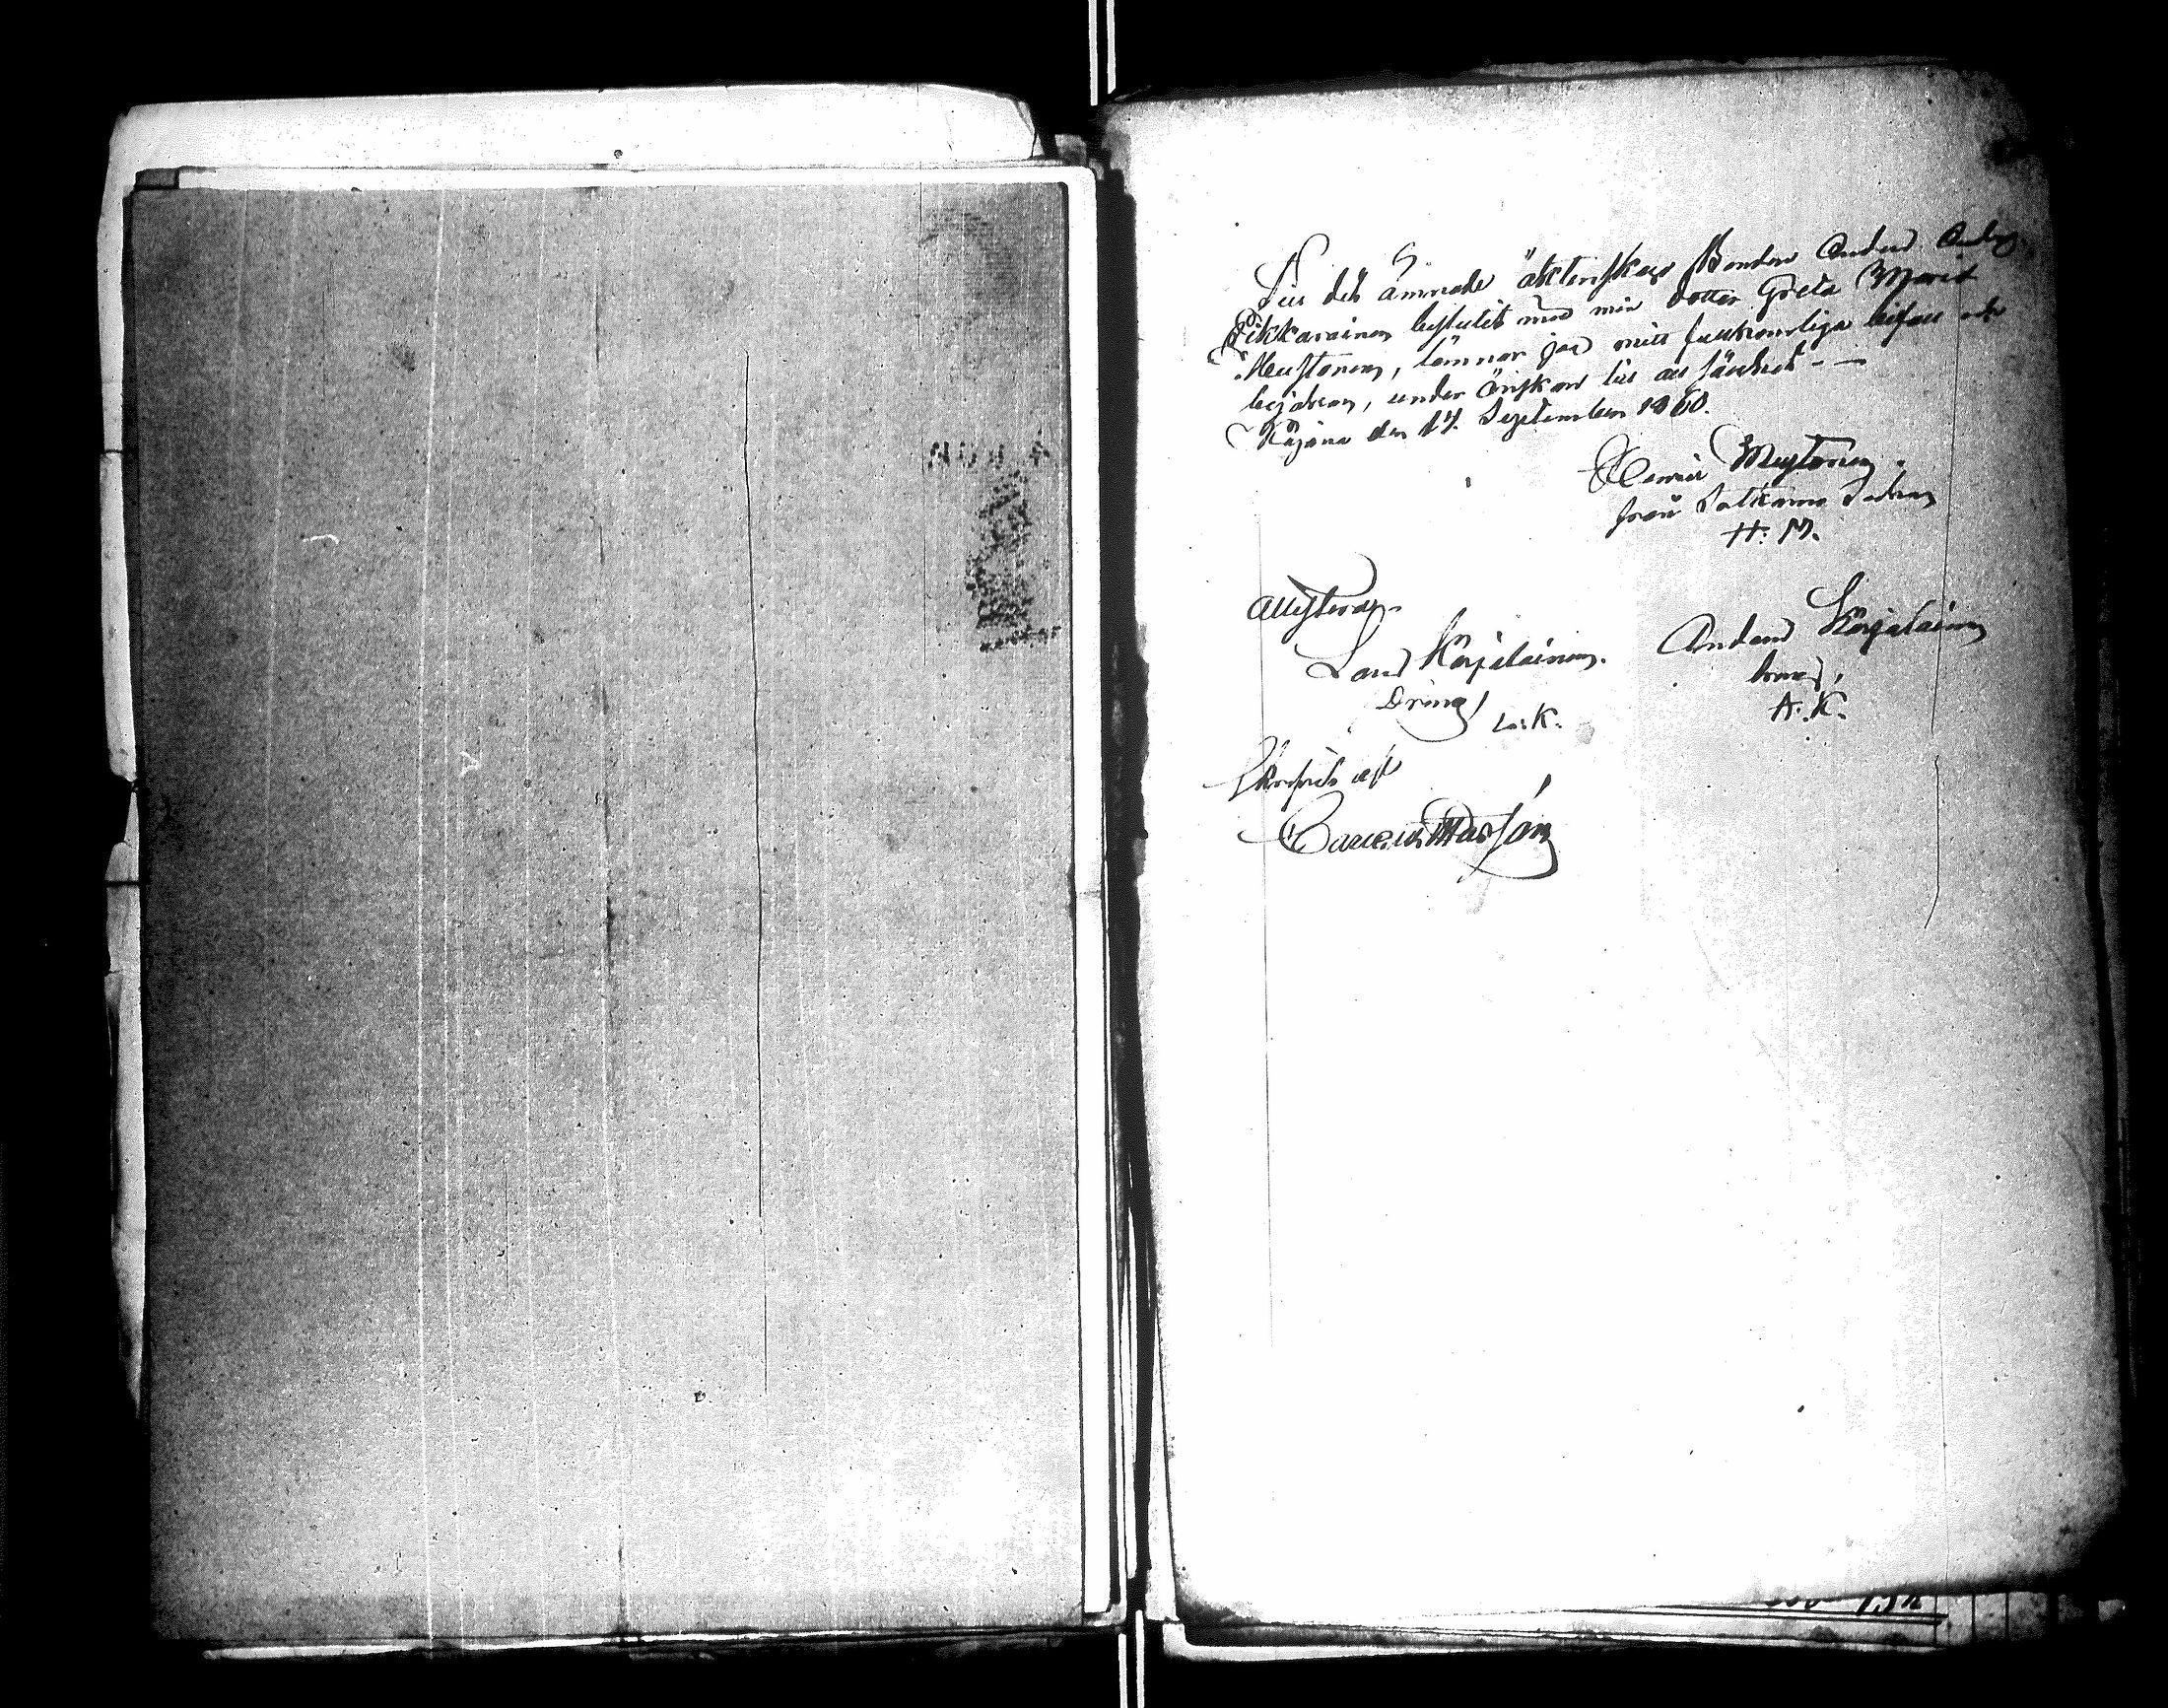 Till det ämnade äktenskap Bonden Anders Anders
Pikkarainen beslutit med min dotter Greta Marit
Mustonen, lemnar jag mitt fullkomliga bifall och
bejakan, under önskan till all sällhet - —
Kajana den 14. September 1860.
Henrik Mustonen.
från
H: M.
Attesteras.
Lars Karjalainen.
Dräng,
L: K.
Anders Karjalainen
bonde,
A. K.
Skrifvit af